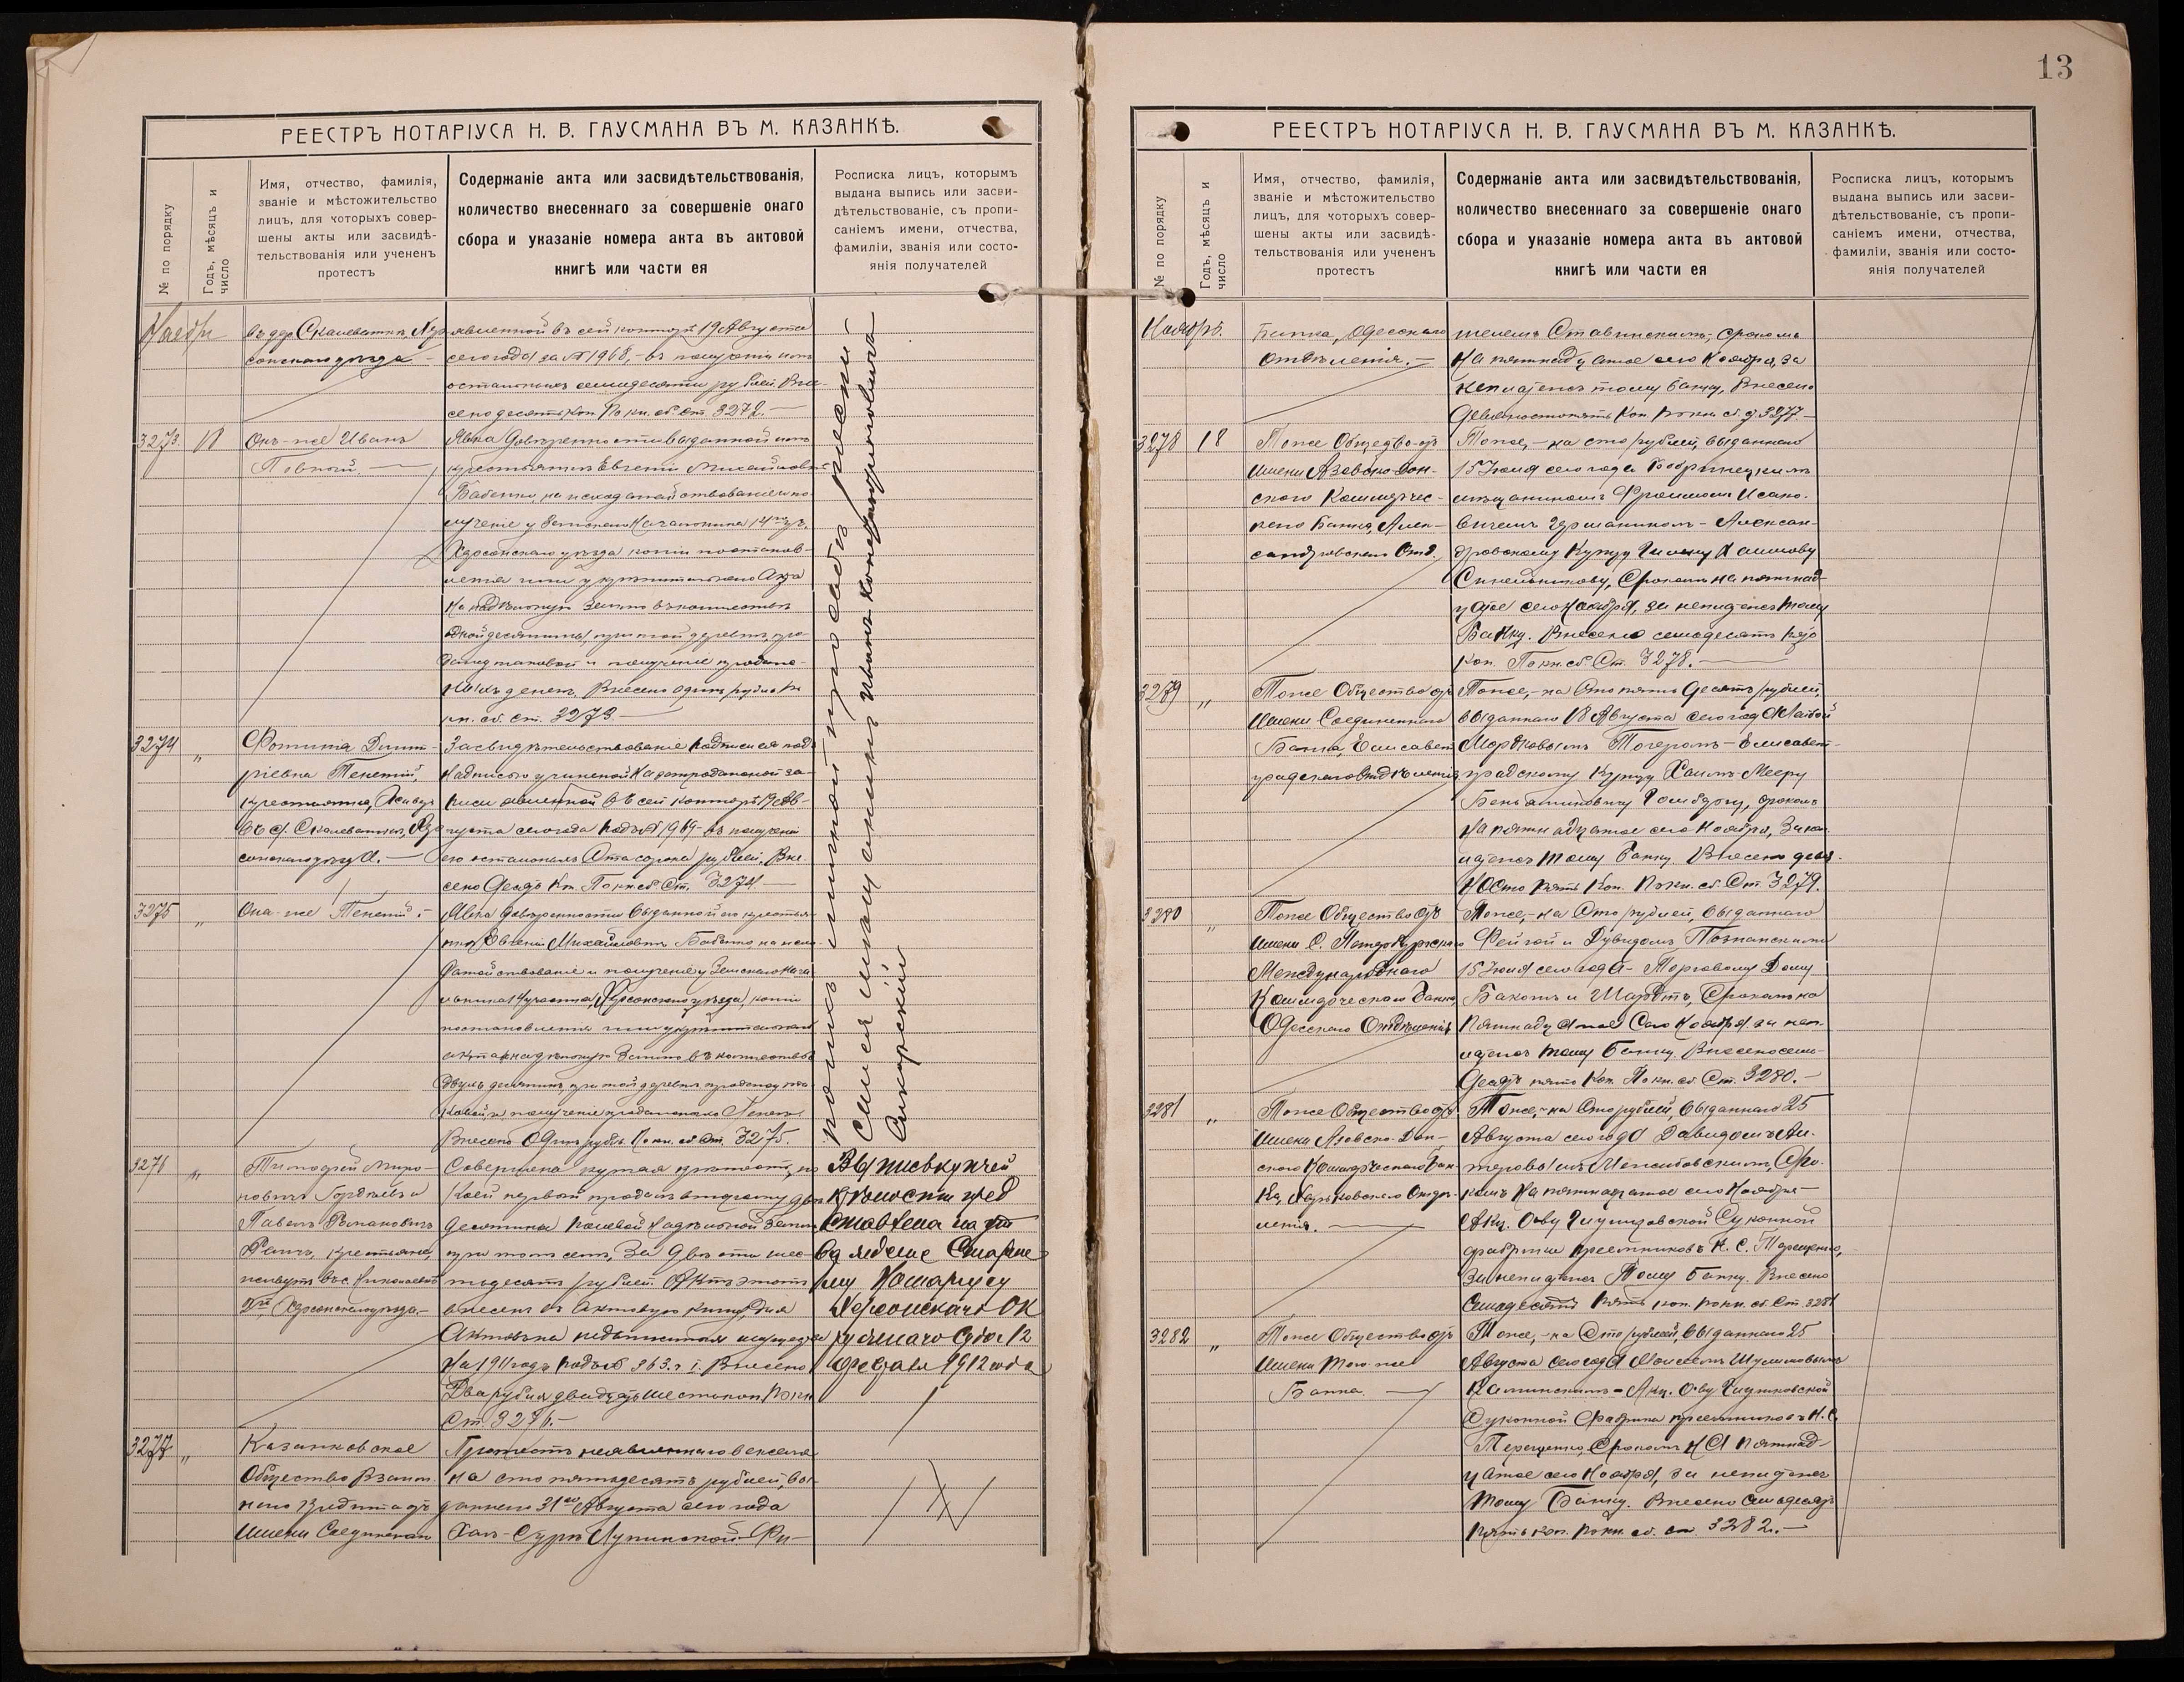 РЕЕСТРЪ НОТАРІУСА Н. В. ГАУСМАНА ВЪ М. КАЗАНКѢ.
№ по порядку
Годъ, мѣсяцъ и
число
Имя, отчество, фамилія,
званіе и мѣстожительство
лицъ, для которыхъ совер-
шены акты или засвидѣ-
тельствованія или учененъ
протестъ
Содержаніе акта или засвидѣтельствованія,
количество внесеннаго за совершеніе онаго
сбора и указаніе номера акта въ актовой
книгѣ или части ея
Росписка лицъ, которымъ
выдана выпись или засви-
дѣтельствованіе, съ пропи-
саніемъ имени, отчества,
фамиліи, званія или состо-
янія получателей
Ноябрь
въ дер. Скалеваткѣ, Хер-
сонскаго уѣзда
явленной въ сей конторѣ 19 Августа
сего года за № 1968, – въ полученіи имъ
остальныхъ семидесяти рублей. Вне-
сено десять коп. По кн. сб. ст. 3272. –
3273. 18
Онъ-же Иванъ
Явка довѣренности выданной имъ
крестьянкѣ Евгеніи Михайловнѣ
Бабенко, на исходатайствованіе и по-
лученіе у Земскаго Начальника 14 уч.
Херсонскаго уѣзда копіи постанов-
ленія или укрѣпительнаго акта
на надѣльную землю въ количествѣ
одной десятины, при той деревнѣ, про-
дажу таковой и полученіе продаж-
ныхъ денегъ. Внесено одинъ рубль По
кн. сб. ст. 3273. –
3274 „
Фотинія Дмит-
ріевна
крестьянка, живущ.
въ д. Скалеваткѣ, Хер-
сонскаго уѣзда. –
Засвидѣтельствованіе подписи ея подъ
надписью учиненной на запродажной за-
писи явленной въ сей конторѣ 19 Ав-
густа сего года подъ № 1969 – въ полученіи
ею остальныхъ ста сорока рублей. Вне-
сено десять Коп. По кн. сб. Ст. 3274. –
3275 „
Она-же
Явка довѣренности выданной ею крестьян-
кѣ Евгеніи Михайловнѣ Бабенко на исхо-
датайствованіе и полученіе у Земскаго Нача-
льника 14 участка, Херсонскаго уѣзда, копіи
постановленія или укрѣпительнаго
акта на надѣльную землю въ количествѣ
двухъ десятинъ, при той деревнѣ продажу та-
ковой, и полученіе продажныхъ денегъ.
Внесено Одинъ рубль По кн. сб. ст. 3275.
3276 „
Тимофей Миро-
новичъ Гордѣевъ и
Павелъ Романовичъ
крестьяне,
живутъ въ с. Николаевкѣ
2й, Херсонскаго уѣзда. –
Совершена купчая крѣпость, по
коей первый продалъ второму двѣ
десятины полевой надѣльной земли
при томъ селѣ, за двѣсти шес-
тьдесятъ рублей. Актъ этотъ
внесенъ въ актовую книгу для
Актовъ на недвижимыя имущества
на 1911 годъ подъ № 363. ч. I. Внесено
Два рубля двадцать шесть коп. По кн.
Ст. 3276. –
Выпись купчей
крѣпости пред
ставлена на ут
вержденіе Старше
му Нотаріусу
Херсонскаго Ок
ружнаго Суда 12
февраля 1912 года
3277 „
Казанковское
Общество Взаим-
наго Кредита отъ
имени Соединеннаго
Протестъ неявленнаго векселя
на сто пятьдесятъ рублей, вы-
даннаго 31го Августа сего года
РЕЕСТРЪ НОТАРІУСА Н. В. ГАУСМАНА ВЪ М. КАЗАНКѢ.
13
№ по порядку
Годъ, мѣсяцъ и
число
Имя, отчество, фамилія,
званіе и мѣстожительство
лицъ, для которыхъ совер-
шены акты или засвидѣ-
тельствованія или учененъ
протестъ
Содержаніе акта или засвидѣтельствованія,
количество внесеннаго за совершеніе онаго
сбора и указаніе номера акта въ актовой
книгѣ или части ея
Росписка лицъ, которымъ
выдана выпись или засви-
дѣтельствованіе, съ пропи-
саніемъ имени, отчества,
фамиліи, званія или состо-
янія получателей
Ноябрь.
Банка, Одесскаго
Отдѣленія. –
Ставинскимъ, срокомъ
на пятнадцатое сего Ноября, за
неплатежъ тому банку, Внесено
девяностопять Коп. По кн. сб. ст. 3277. –
3278 18
Тоже Общество отъ
имени Азовско-Дон-
скаго Коммерчес-
каго Банка, Алек-
сандровскаго Отд.
Тоже, – на сто рублей, выданнаго
15 Іюля сего года Бобринецкимъ
мѣщаниномъ Исако-
вичемъ – Алексан-
дровскому Купцу
Синельникову, срокомъ на пятнад-
цатое сего Ноября, за неплатежъ тому
Банку. Внесено семьдесятъ пять
коп. По кн. сб. Ст. 3278. –
3279 „
Тоже Общество отъ
имени Соединеннаго
Банка, Елисавет-
градскаго Отдѣленія
Тоже, – на сто пятьдесятъ рублей,
выданнаго 18 Августа сего года
– Елисавет-
градскому Купцу Хаимъ-Мееру
срокомъ
на пятнадцатое сего Ноября, за неп-
латежъ тому банку. Внесено девя-
носто пять Коп. По кн. сб. Ст. 3279.
3280 „
Тоже Общество отъ
имени С. Петербургскаго
Международнаго
Коммерческаго банка,
Одесскаго Отдѣленія
Тоже, – на сто рублей, выданнаго
Фейгой и Дувидомъ Познанскими
15 Іюля сего года – Торговому Дому
срокомъ на
пятнадцатое сего Ноября, за неп-
латежъ тому Банку. Внесено семь-
десятъ пять Коп. По кн. сб. Ст. 3280. –
3281 „
Тоже Общество отъ
имени Азовско-Дон-
скаго Коммерческаго Бан-
ка, Харьковскаго Отдѣ-
ленія. –
Тоже, – на сто рублей, выданнаго 25
Августа сего года Давидомъ
сро-
комъ на пятнадцатое сего Ноября –
Акц. О-ву Глушковской Суконной
фабрики преемниковъ Н. С. Терещенко,
за неплатежъ тому Банку. Внесено
семьдесятъ пять коп. По кн. сб. Ст. 3281
3282 „
Тоже Общество отъ
имени того-же
Банка. –
Тоже, – на сто рублей, выданнаго 25
Августа сего года
Каминскимъ – Акц. О-ву Глушковской
Суконной Фабрики преемниковъ Н. С.
Терещенко, срокомъ на пятнад-
цатое сего Ноября, за неплатежъ
тому Банку. Внесено семьдесятъ
пять коп. По кн. сб. ст. 3282. –